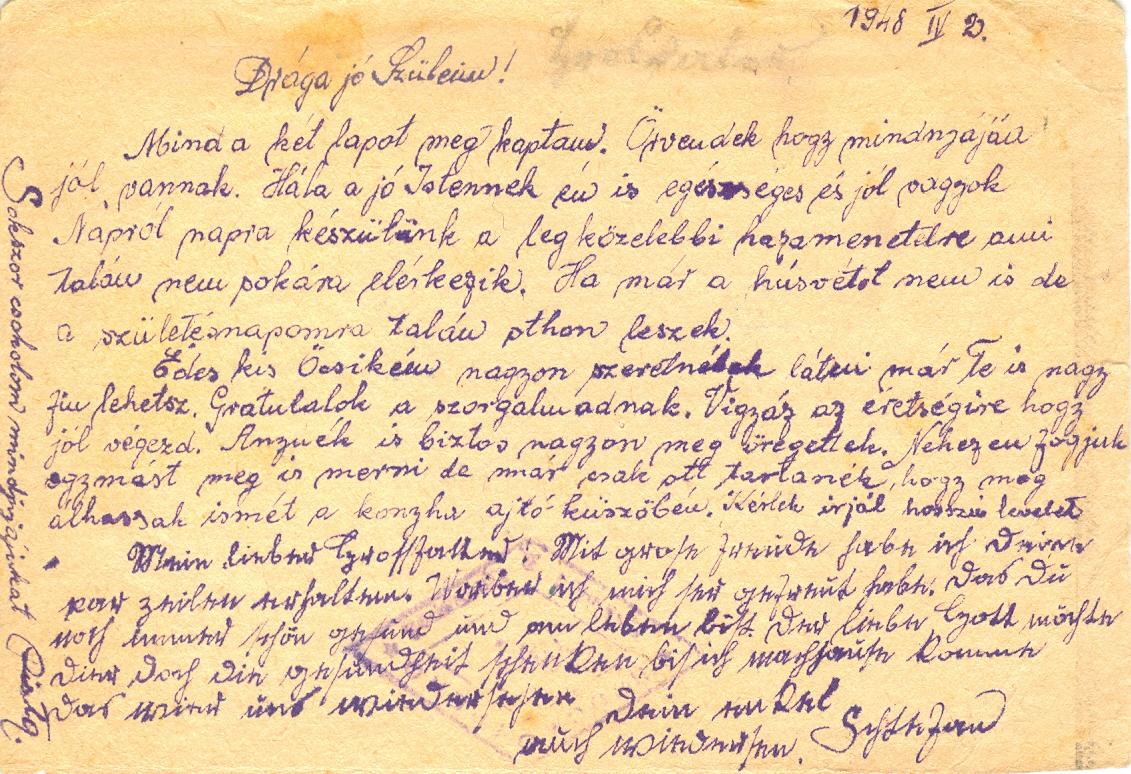 1948 IV 2.
Drága jó Szüleim!
Mind a két lapot meg kaptam. Örvendek hogy mindnyáján
jól vannak. Hála a jó Istennek én is egészséges és jól vagyok
Napról napra készülünk a legközelebbi hazamenetelre ami
talán nem sokára elérkezik. Ha már a húsvétot nem is de
a születésnapomra talán othon leszek.
Édes kis Öcsikém nagyon szeretnélek látni már Te is nagy
fiu lehetsz. Gratulalok a szorgalmadnak. Vigyáz az éretségire hogy
jól végezd. Anyuék is biztos nagyon meg öregettek. Nehezen fogjuk
egymást meg is merni de már csak ott tartanék, hogy meg
álhassak ismét a konyha ajtó küszöbén. Kérlek irjál hosszu levelet
Mein lieber Grossfatter Mit grose freude habe ich deine
par zeilen erhalten. Woriber ich mich ser gefreut habe. das du
noch immer schön gesund und am leben bist der liebe Gott möchte
dier doch die gesundheit schenken bis ich nachhause komme
das wier uns wiedersehen dein enkel
auch wiedersen. Schtefan
Sokszor csokolom mindnyájukat Pista.